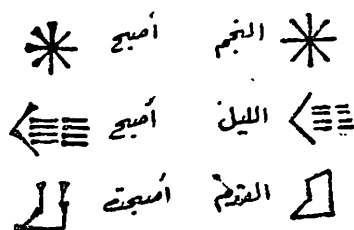 النجم أصبح
الليل أصبح
أصبحت